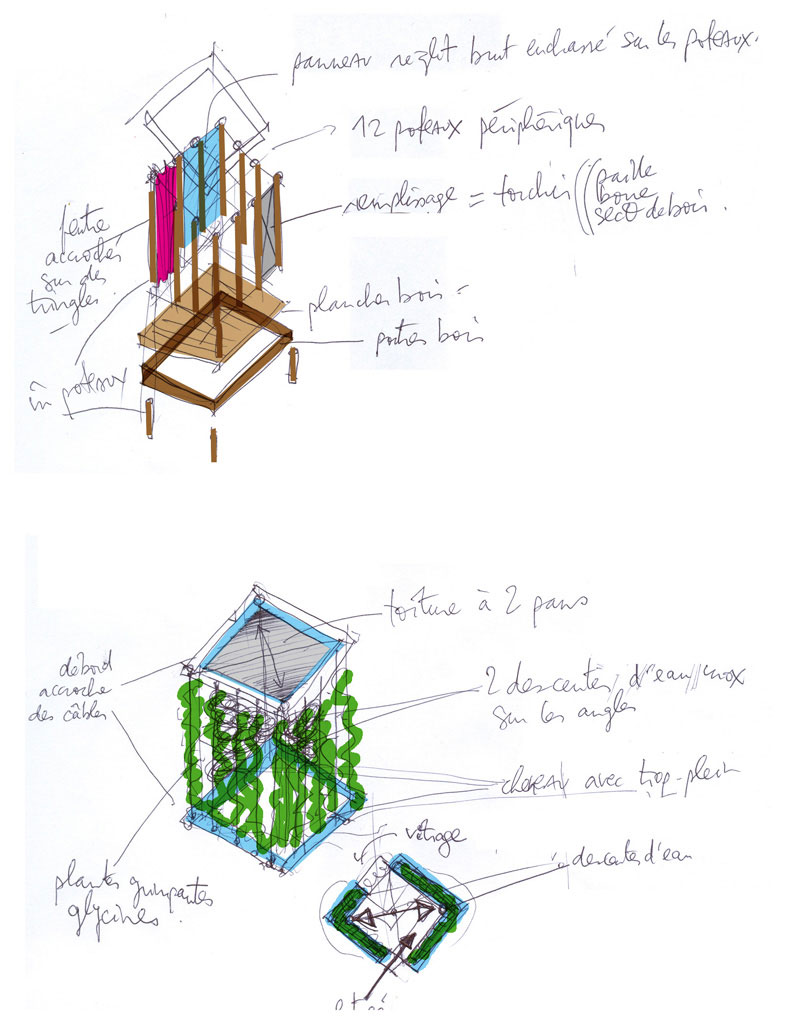 panneau rezglt brut enchassé sur les poteaux.
12 poteaux périphériques
remplissage = torchis
paille
boue
sect° de bois.
feutre
accrochés
sur des
tringles.
planches bois =
poutres bois
poteaux
toiture à 2 pans
débord
accroche
des câbles
2 descentes d'eau inox
sur les angles
avec trop-plein
vitrage
descentes d'eau
plantes grimpantes
glycines.